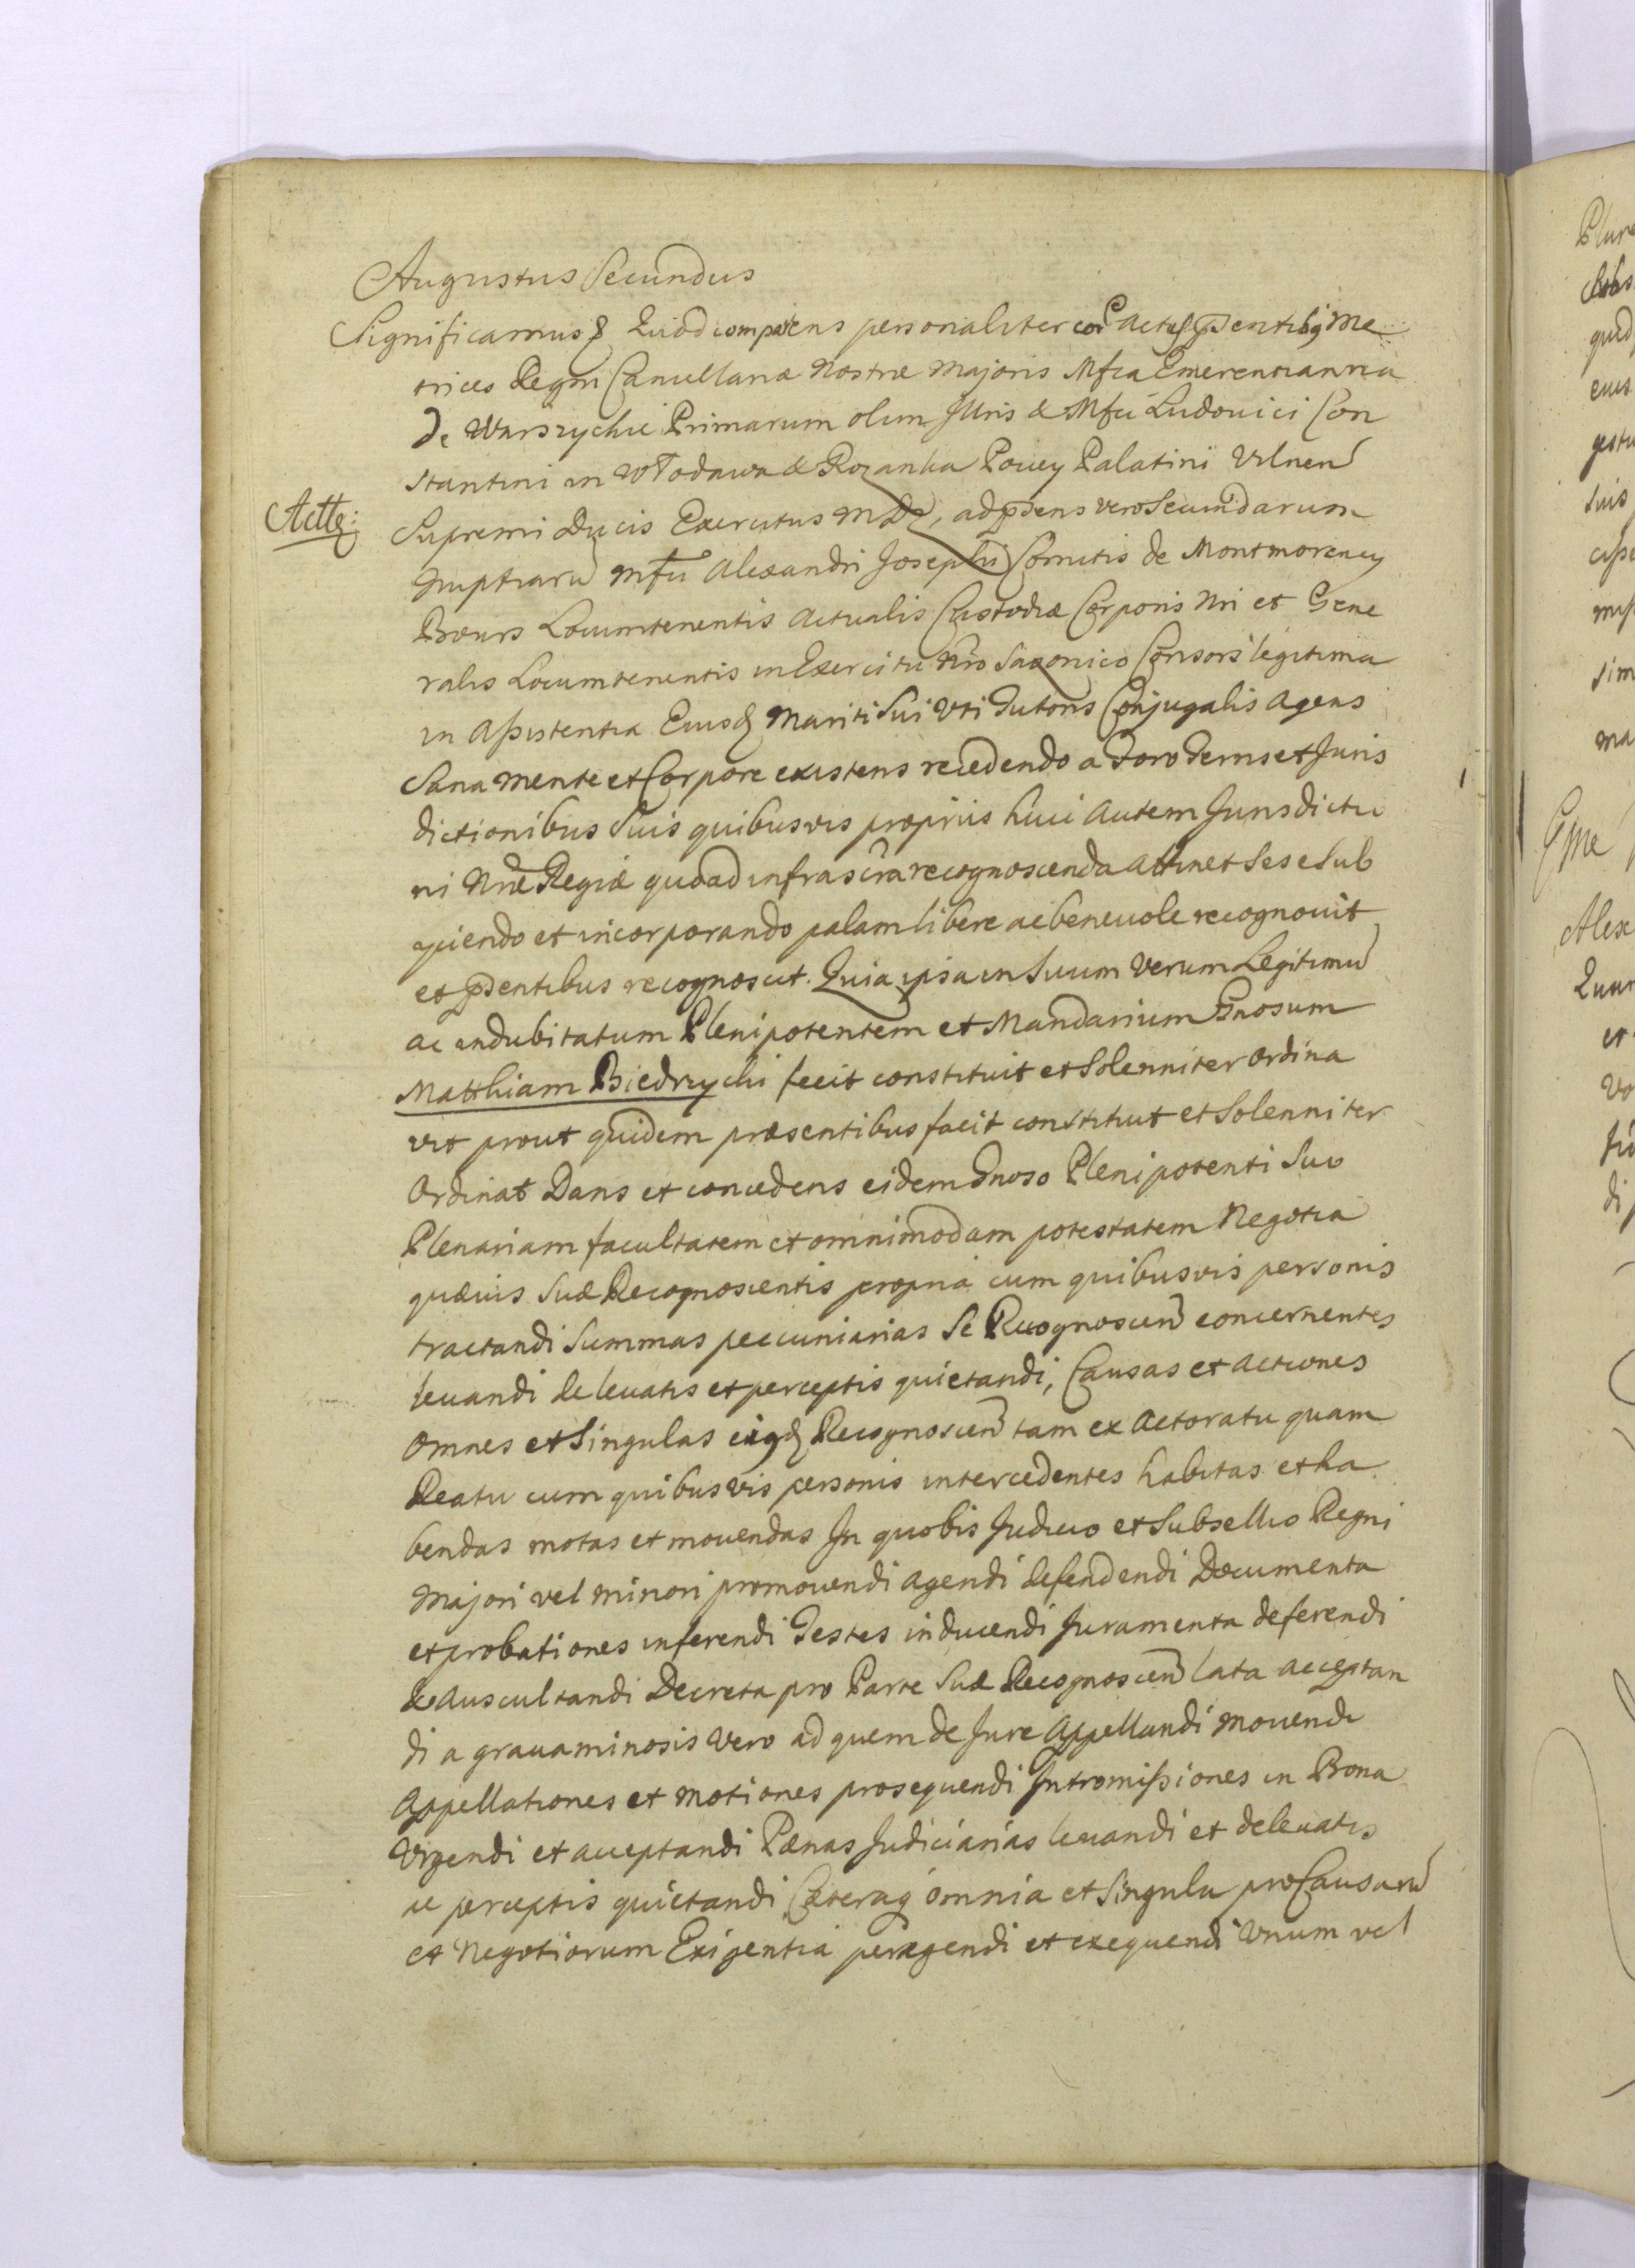 Augustus Secundus
Significamus & Quod comparens personaliter cor Actis pntibq Me
trices Regni Cancellariæ Nostræ Majoris Mfca Emerentianna
De Warszychie Primarum olim Illris & Mfci Ludovici Con
stantini in Włodawa & Rozanka Pociey Palatini Vilnen
Actg:
Supremi Ducis Exercitus MDL, ad pdens vero Secundarum
Nuptiaru Mfci Alexandri Josephi Comitis de Montmorency
Bours Locumtenentis Actualis Custodiæ Corporis Nri et Gene
ralis Locumtenentis in Exercitu Nro Saxonico Consors legitima
in Assistentia Eiusq Mariti Sui Uti Tutoris Conjugalis Agens
Sana Mente et Corpore existens recedendo a Foro Terris et Juris
dictionibus Suis quibusvis propriis huic Autem Jurisdictio
ni Nræ Regiæ quoad infrascra recognoscenda Attinet Sese Sub
ijciendo et incorporando palam libere ac benevole recognovit
et pdentibus recognoscit. Quia ipsa in Suum Verum Legitimu
ac indubitatum Plenipotentem et Mandarium Gnosum
Matthiam Biedrzychi fecit constituit et Solenniter ordina
vit prout quidem præsentibus facit constituit et Solenniter
Ordinat Dans et concedens eidem Gnoso Plenipotenti Suo
Plenariam facultatem et omnimodam potestatem Negotia
quævis Suæ Recognoscentis propria cum quibusvis personis
tractandi Summas pecuniarias Se Recognoscen concernentes
levandi de levatis et perceptis quietandi, Causas et Actiones
Omnes et Singulas eiqq Recognoscen tam ex Actoratu quam
Reatu cum quibusvis personis intercedentes habitas et ha
bendas motas et movendas In quobis Judicio et Subsellio Regni
Majori vel minori promovendi Agendi defendendi Documenta
et probationes inferendi Testes inducendi Juramenta deferendi
& Auscultandi Decreta pro Parte Suæ Recognoscen lata acceptan
di a gravaminosis Vero ad quem de Jure Appellandi Movendi
Appellationes et Motiones prosequendi Intromissiones in Bona
Urgendi et acceptandi Pænas Judiciarias levandi et delevatis
ac perceptis quietandi Cæteraq omnia et Singula pro Causaru
et Negotiorum Exigentia peragendi et exequendi Unum vel